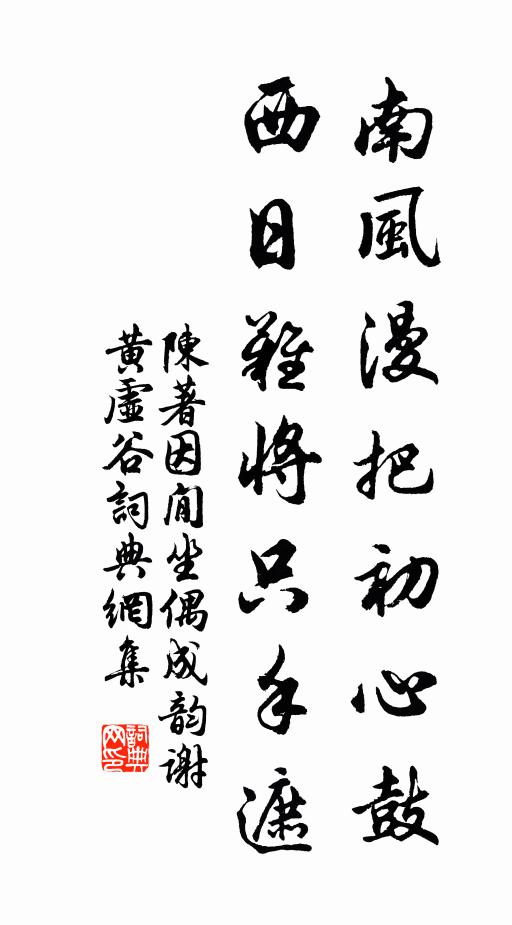 南風漫把初心鼓
西日難將只手遮
陳著因閒坐偶成韵謝
黃虛谷詞典網集
詞典網印